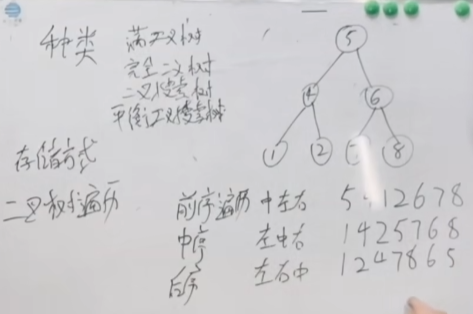 种类 满二叉树
完全二叉树
二叉搜索树
平衡二叉搜索树
5
4 6
1 2 8
存储方式
二叉树遍历 前序遍历 中左右 5412678
中序 左中右 1425768
后序 左右中 1247865